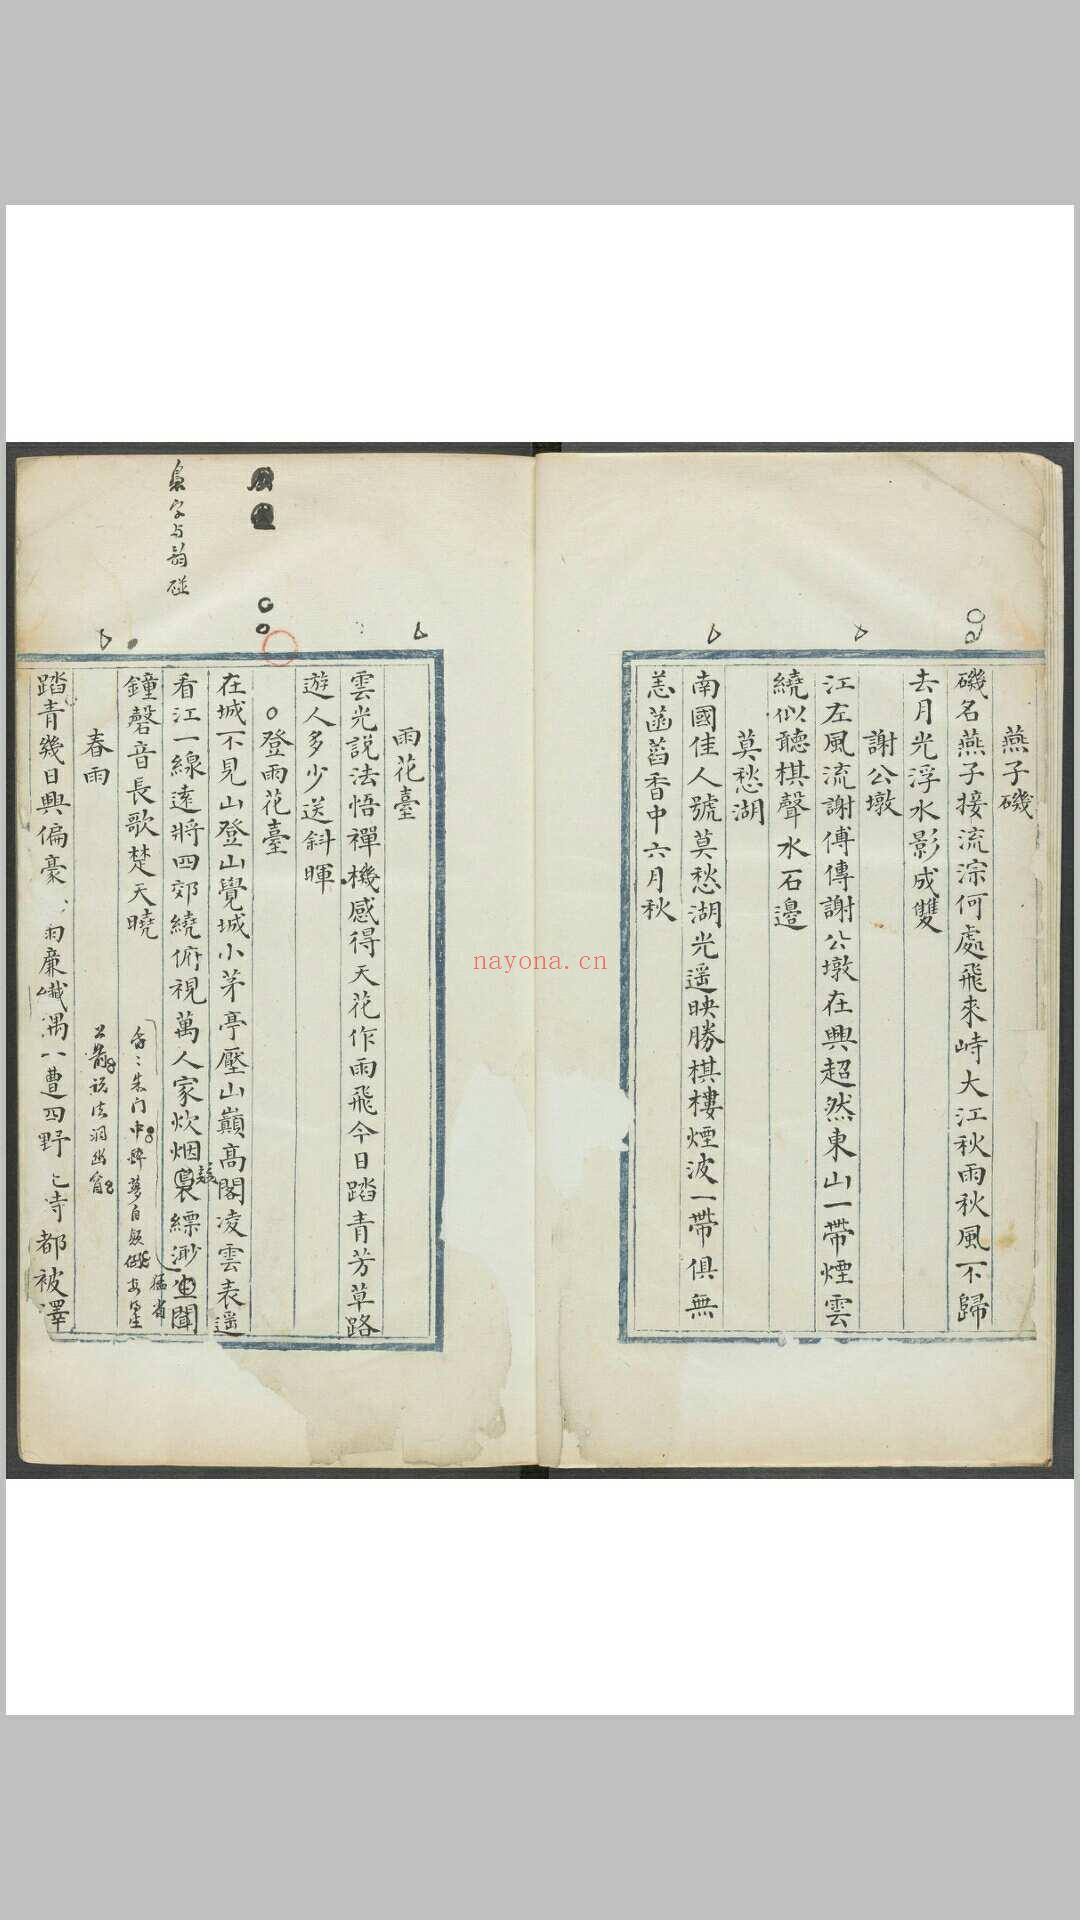 燕子磯
磯名燕子接流淙何處飛來峙大江秋雨秋風不歸
去月光浮水影成雙
謝公墩
江左風流謝傅傳謝公墩在興超然東山一帶煙雲
繞似聽棋聲水石邊
莫愁湖
南國佳人號莫愁湖光遥映勝棋樓煙波一帶俱無
恙菡萏香中六月秋
雨花臺
雲光説法悟禪機感得天花作雨飛今日踏青芳草路
遊人多少送斜暉
登雨花臺
在城不見山登山覺城小茅亭壓山巔高閣凌雲表遥
看江一線遠將四郊繞俯視萬人家炊烟裊縹渺坐聞
鐘磬音長歌楚天曉
春雨
踏青幾日興偏豪雨廉纖遇八遭四野寺都被澤
裊字与韵碰
朱门中醉夢自
猛省
説法洞幽
nayona.cn